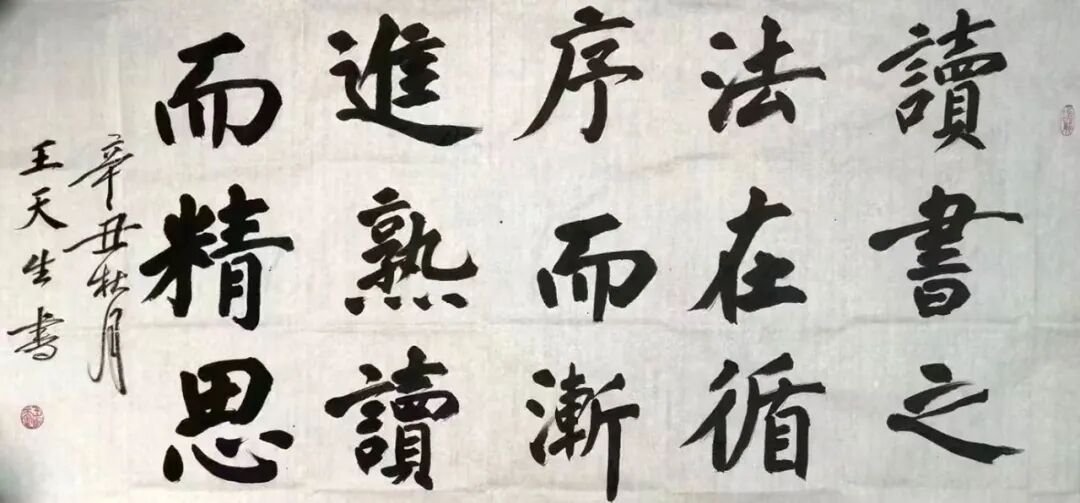 讀書之
法在循
序而漸
進熟讀
而精思
辛丑秋月
王天生書